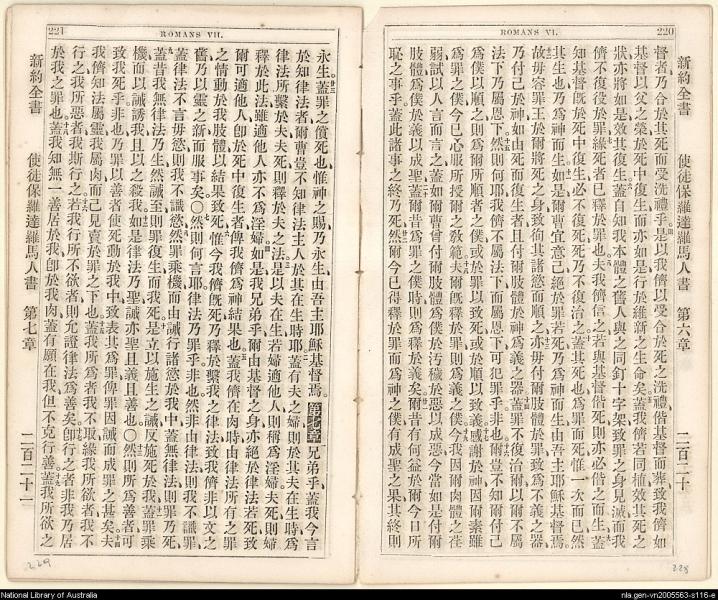 220
ROMANS VI.
新約全書 使徒保羅達羅馬人書 第六章 二百二十
督者乃合於其死而受洗禮乎是以我儕以受合於死之洗禮偕基督而葬致我儕如
基督以父之榮於死中復生而亦如是行於維新之生命矣蓋我儕若同植效其死之
狀亦將如是效其復生蓋自知我本體之舊人與之同釘十字架致罪之身見滅而我
儕不復役於罪緣死者已釋於罪也夫我儕信之若與基督偕死則亦必偕之而生蓋
知基督旣於死中復生必不復死死乃不復治之蓋其死也爲罪而死惟一次而已然
其生也乃爲神而生如是爾曹宜意已絕於罪若死乃爲神而生由吾主耶穌基督焉
故毋容罪王於爾將死之身致徇其諸慾而順之亦毋付爾肢體於罪致爲不義之器
乃付己於神如由死而復生者且付爾肢體於神爲義之器蓋罪不復治爾以爾不屬
法下乃屬恩下然則何耶我儕不屬法下而屬恩下可犯罪乎非也爾豈不知爾付己
爲僕以順之則爲爾所順者之僕或於罪以致死或於順以致義感謝於神因爾素雖
爲罪之僕今已心服所授爾之敎範夫爾旣釋於罪則爲義之僕今我因爾肉體之荏
弱試以人言而言之蓋如爾曹曾付爾肢體爲僕於汚穢於惡以成惡今當如是付爾
肢體爲僕於義以成聖蓋爾昔爲罪之僕時則爲釋於義矣爾昔有何益於爾今日所
恥之事乎蓋此諸事之終乃死然爾今已得釋於罪而爲神之僕有成聖之果其終則
228
221
ROMANS VII.
永生蓋罪之償死也惟神之賜乃永生由吾主耶穌基督焉第七章兄弟乎蓋我今言
於知律法者爾曹豈不知律法主人於其在生時耶蓋有夫之婦則於其夫在生時爲
律法所繫於夫夫死則釋於夫之法是以夫在生若婦適他人則稱爲淫婦夫死則婦
釋於此法雖適他人亦不爲淫婦如是我兄弟乎爾由基督之身亦絕於律法若死致
爾可適他人卽於死中復生者俾我儕爲神結果也蓋我儕在肉時由律法所有之罪
之情動於我肢體以結果致死惟今我儕旣死乃釋於繫我之律法致我儕非以文之
舊乃以靈之新而服事矣〇然則何言耶律法乃罪乎非也然非由律法則我不識罪
蓋律法不言毋慾則我不識慾然罪乘機而由誡行諸慾於我中蓋無律法則罪乃死
蓋昔我無律法乃生然誡至則罪復生而我死是立以施生之誡反施死於我蓋罪乘
機而以誡誘我且以之殺我如是律法乃聖誡亦聖且義且善也〇然則所爲善者可
致我死乎非也乃罪以善者使死動於我中致表其爲罪俾罪因誡而成罪之甚矣夫
我儕知法屬靈我屬肉而己見賣於罪之下也蓋我所爲者我不取緣我所欲者我不
行之我所惡者我斯行之若我行所不欲者則允證律法爲善矣卽行之者非我乃居
於我之罪也蓋我知無一善居於我卽於我肉蓋有願在我但不克行善蓋我所欲之
新約全書 使徒保羅達羅馬人書 第七章 二百二十一
229
National Library of Australia
nla.gen-vn2005563-s116-e